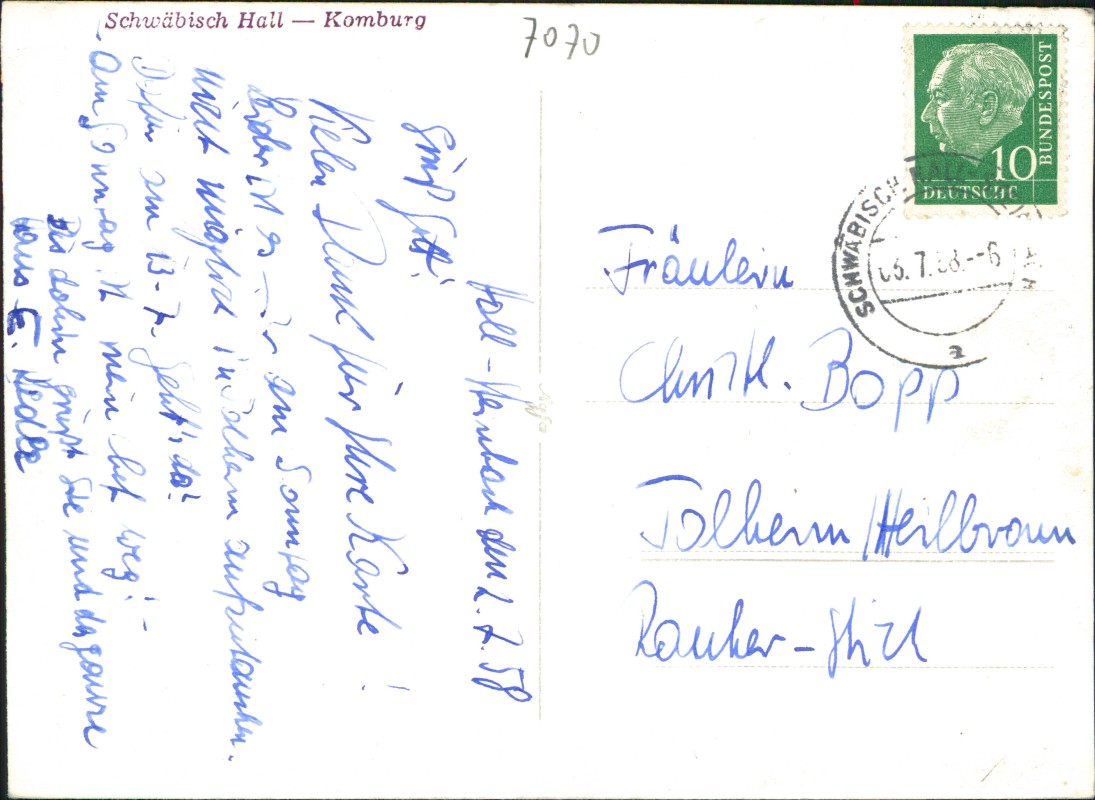 Schwäbisch Hall — Komburg
7070
Hall - Steinbach den 2.7.58
Grüß Gott!
Vielen Dank für Ihre Karte!
Leider ist es mir am Sonntag
nicht möglich in Talheim aufzutauchen.
Dafür am 13.7. geht's da!
Am Sonntag ist mein Chef weg! -
Bis dahin grüßt Sie und das ganze
Haus E.
DEUTSCHE
BUNDESPOST
10
SCHWÄBISCH HALL
7.58.--6
a
Fräulein
Christl. Bopp
Talheim/Heilbronn
Rauher-Stich